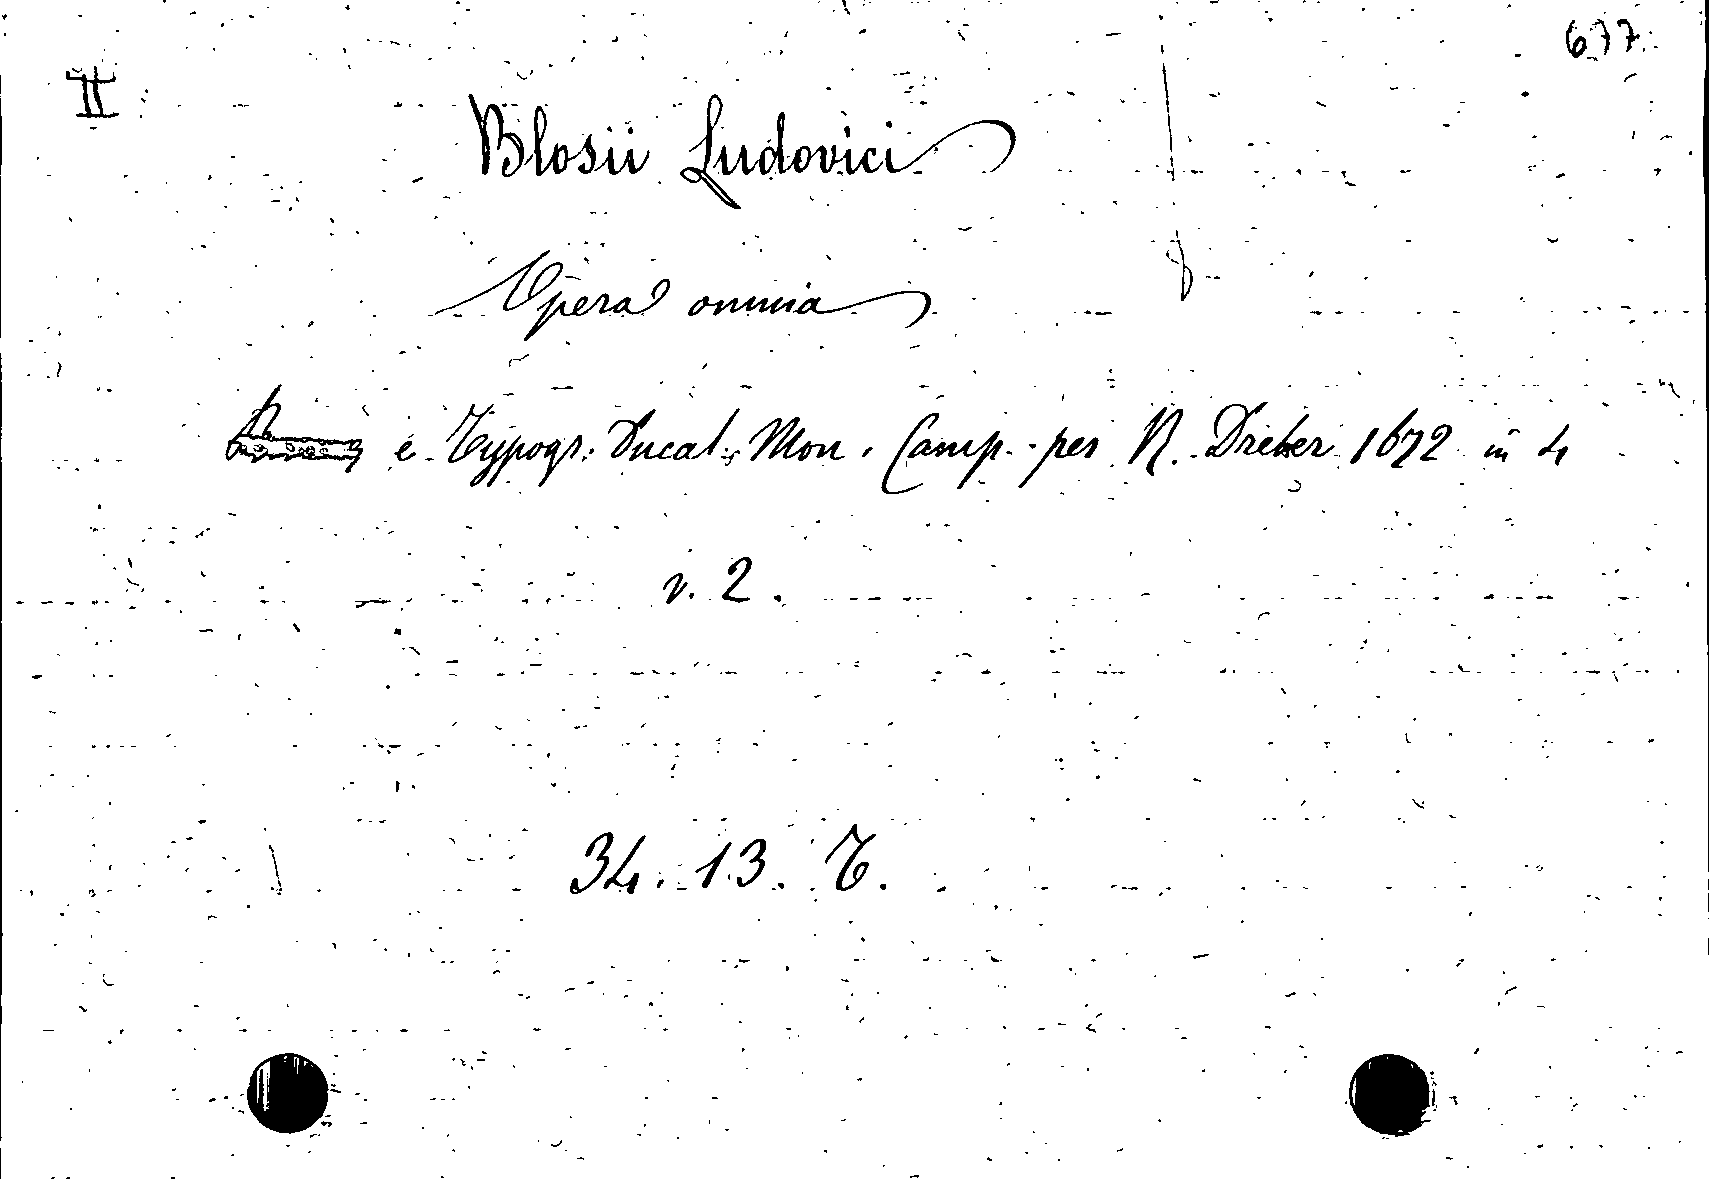 677
II
Blosii Ludovici
Opera omnia
e Typogr. Ducal. Mon. Camp. per R. Dreher 1672 in 4
v. 2.
34. 13. T.